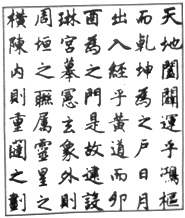 天地闔闢運乎鴻樞
而乾坤為之戶日月
出入經乎黃道而卯
酉為之門是故建設
琳宮摹憲玄象外則
周垣之聯属靈星之
橫陳內則重闥之劃